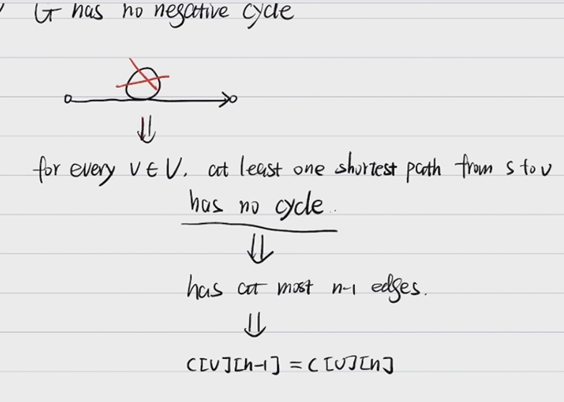 G has no negative cycle
⇓
for every v ∈ V. at least one shortest path from s to v
has no cycle.
⇓
has at most n-1 edges.
⇓
C[v][n-1] = C[v][n]